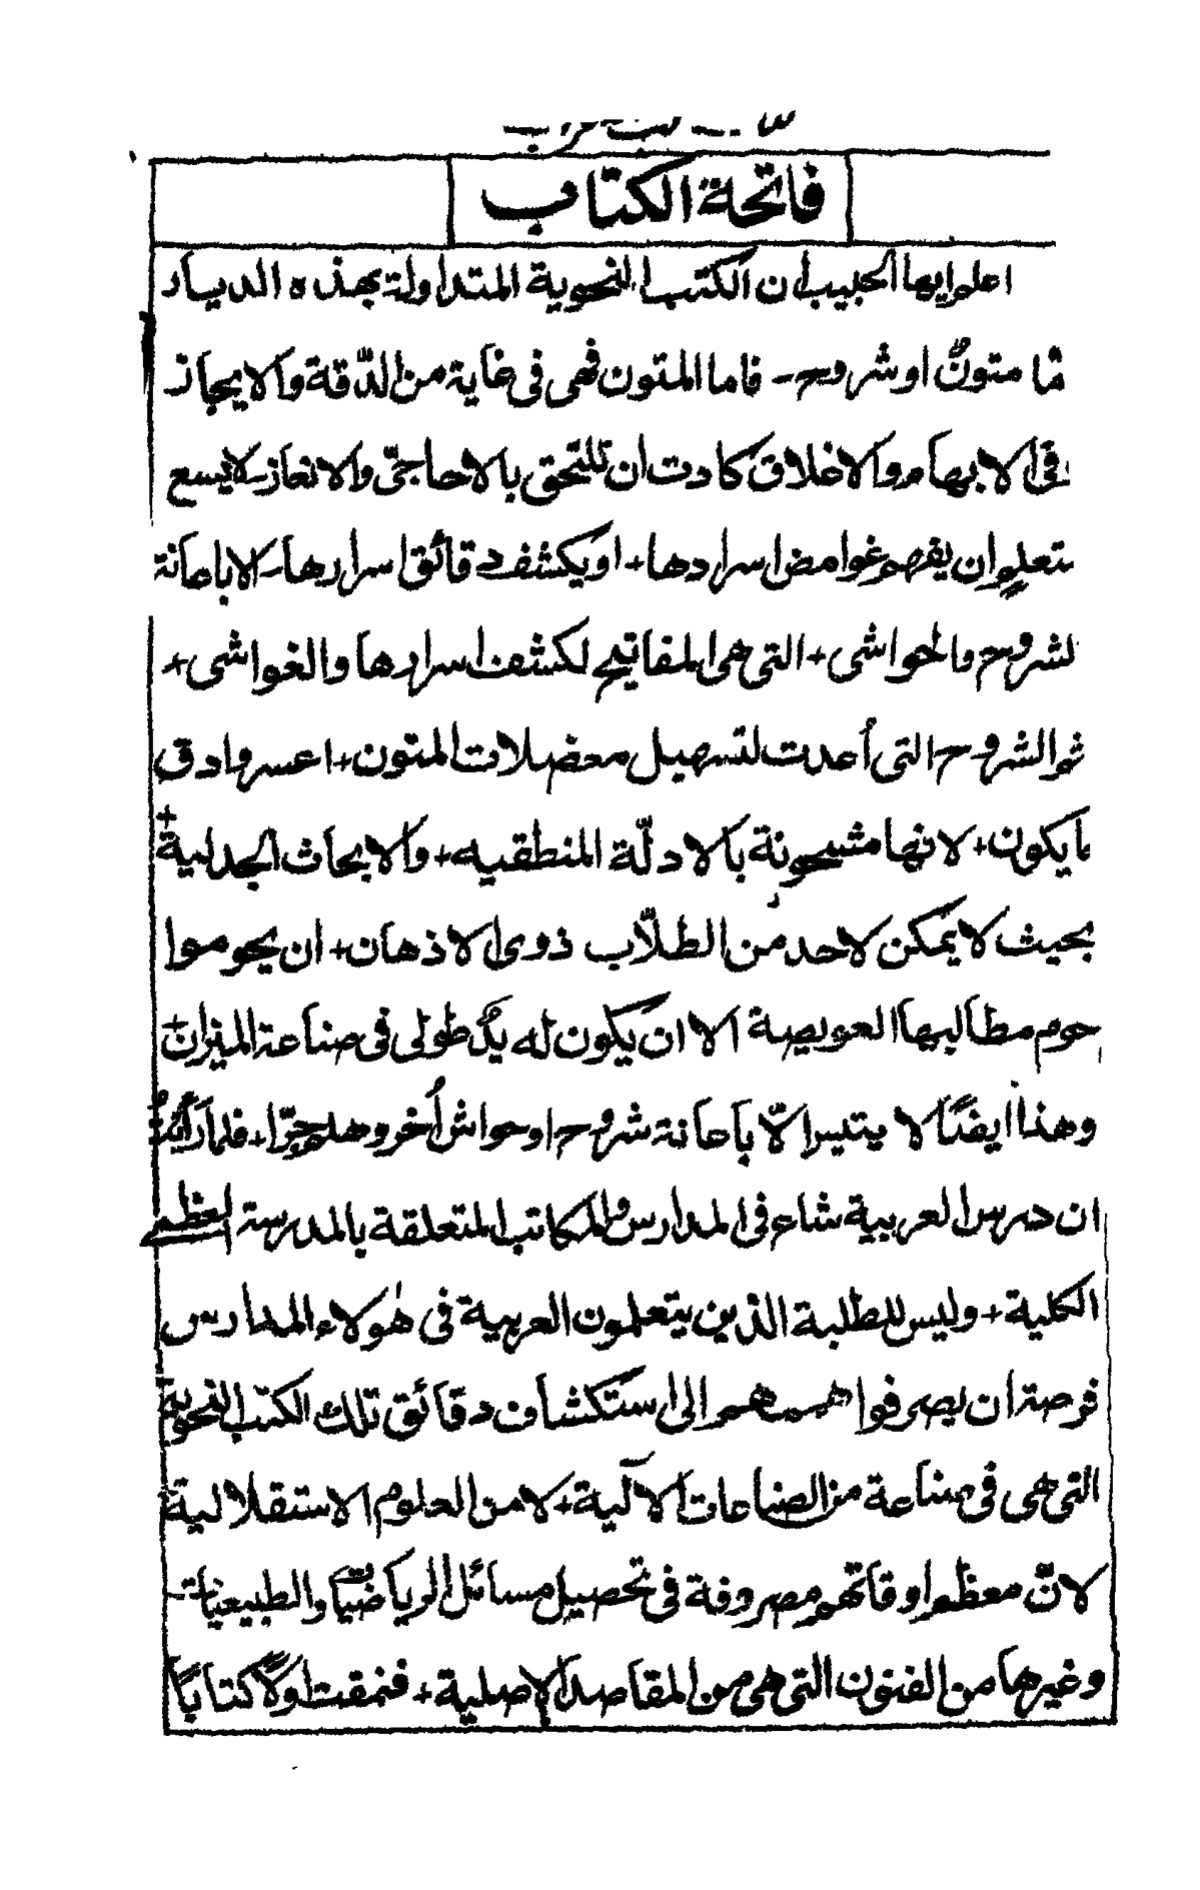 فاتحة الكتاب
اعلم ايها الحبيب ان الكتب النحوية المتداولة بهذه الديار
ما متونٌ او شروح - فاما المتون فهى فى غاية من الدّقة والايجاز
فى الابهام والاغلاق كادت ان تلتحق بالاحاجىّ والالغاز - لايسع
متعلم ان يفهم غوامض اسراردها + او يكشف دقائق اسرارها - الا باعانة
لشروح والحواشى + التى هى المفاتيح لكشف اسرارها والغواشى +
ثم الشروح التى أعدت لتسهيل معضلات المتون + اعسر وادق
ما يكون + لانها مشحونة بالادلّة المنطقيه + والابحاث الجدلية +
بحيث لا يمكن لاحد من الطلاّب ذوى الاذهان + ان يحوموا
حوم مطالبها العويصة الا ان يكون له يدٌ طولى فى صناعة الميزان +
وهذا ايضًا لا يتيسر الاّ باعانة شروح او حواش أُخر وهلم جرّا + فلما رأيتُ
ان درس العربية شاع فى المدارس والمكاتب المتعلقة بالمدرسة العظمى
الكلية + وليس للطلبة الذين يتعلمون العربية فى هٰولاء المدارس
فرصة ان يصرفوا هممهم الى استكشاف دقائق تلك الكتب النحوية
التى هى فى صناعة من الصناعات الآلية + لا من العلوم الاستقلالية
لانّ معظم اوقاتهم مصروفة فى تحصيل مسائل الرياضيّات والطبيعيات -
وغيرها من الفنون التى هى من المقاصد الاصلية + فنمقت اولاً كتابًا